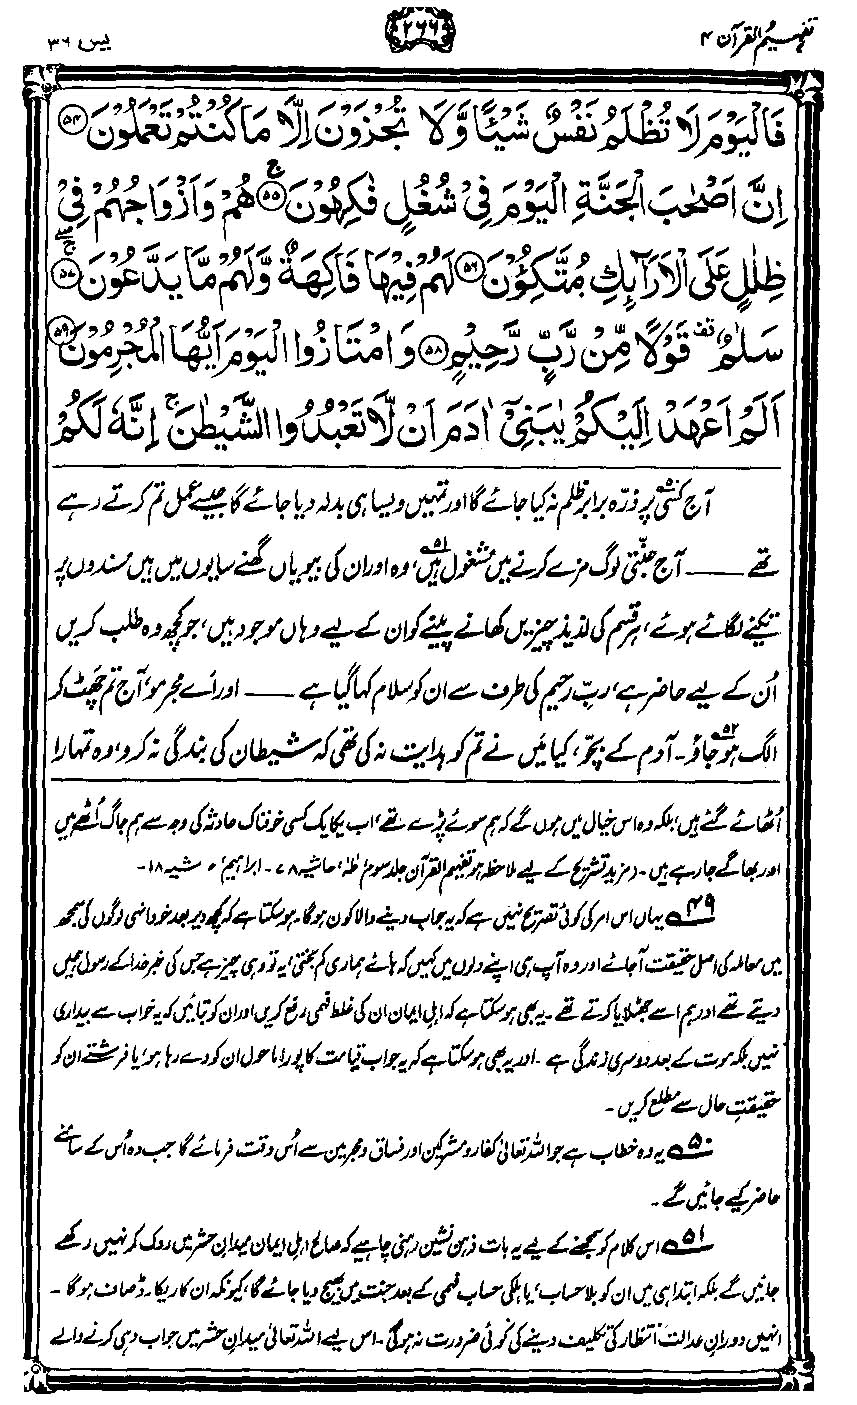 تفہیم القرآن ۴
۲۶۶
یٰس ۳۶
فَالْيَوْمَ لَا تُظْلَمُ نَفْسٌ شَيْـًٔا وَّلَا تُجْزَوْنَ اِلَّا مَا كُنْتُمْ تَعْمَلُوْنَ ﴿۵۴﴾
اِنَّ اَصْحٰبَ الْجَنَّةِ الْيَوْمَ فِيْ شُغُلٍ فٰكِهُوْنَ ﴿۵۵﴾ۚ هُمْ وَاَزْوَاجُهُمْ فِيْ
ظِلٰلٍ عَلَى الْاَرَآىِٕكِ مُتَّكِـُٔوْنَ ﴿۵۶﴾ لَهُمْ فِيْهَا فَاكِهَةٌ وَّلَهُمْ مَّا يَدَّعُوْنَ ﴿۵۷﴾ۚ
سَلٰمٌ قف قَوْلًا مِّنْ رَّبٍّ رَّحِيْمٍ ﴿۵۸﴾ وَامْتَازُوا الْيَوْمَ اَيُّهَا الْمُجْرِمُوْنَ ﴿۵۹﴾
اَلَمْ اَعْهَدْ اِلَيْكُمْ يٰبَنِيْٓ اٰدَمَ اَنْ لَّا تَعْبُدُوا الشَّيْطٰنَ ۚ اِنَّهٗ لَكُمْ
آج کسی۵۰ پر ذرّہ برابر ظلم نہ کیا جائے گا اور تمہیں ویسا ہی بدلہ دیا جائے گا جیسے عمل تم کرتے رہے
تھے ــــــ آج جنّتی لوگ مزے کرنے میں مشغول ہیں۵۱، وہ اور ان کی بیویاں گھنے سایوں میں ہیں مسندوں پر
تکیے لگائے ہوئے، ہر قسم کی لذیذ چیزیں کھانے پینے کو ان کے لیے وہاں موجود ہیں، جو کچھ وہ طلب کریں
اُن کے لیے حاضر ہے، ربِّ رحیم کی طرف سے ان کو سلام کہا گیا ہے ــــــ اور اَے مجرمو، آج تم چَھٹ کر
الگ ہو جاؤ۵۲۔ آدم کے بچّو، کیا مَیں نے تم کو ہدایت نہ کی تھی کہ شیطان کی بندگی نہ کرو، وہ تمہارا
اُٹھائے گئے ہیں، بلکہ وہ اس خیال میں ہوں گے کہ ہم سوئے پڑے تھے، اب یکایک کسی خوفناک حادثہ کی وجہ سے ہم جاگ اُٹھے ہیں
اور بھاگے جا رہے ہیں۔ (مزید تشریح کے لیے ملاحظہ ہو تفہیم القرآن جلد سوم، طٰہٰ، حاشیہ ۷۸۔ ابراہیم، حاشیہ ۱۸۔
۴۹ یہاں اس امر کی کوئی تصریح نہیں ہے کہ یہ جواب دینے والا کون ہوگا۔ ہو سکتا ہے کہ کچھ دیر بعد خود انہی لوگوں کی سمجھ
میں معاملہ کی اصل حقیقت آ جائے اور وہ آپ ہی اپنے دلوں میں کہیں کہ ہائے ہماری کم بختی، یہ تو وہی چیز ہے جس کی خبر خدا کے رسول ہمیں
دیتے تھے اور ہم اسے جھٹلایا کرتے تھے۔ یہ بھی ہو سکتا ہے کہ اہلِ ایمان ان کی غلط فہمی رفع کریں اور ان کو بتائیں کہ یہ خواب سے بیداری
نہیں بلکہ موت کے بعد دوسری زندگی ہے۔ اور یہ بھی ہو سکتا ہے کہ یہ جواب قیامت کا پورا ماحول ان کو دے رہا ہو، یا فرشتے ان کو
حقیقتِ حال سے مطلع کریں۔
۵۰ یہ وہ خطاب ہے جو اللہ تعالیٰ کفار و مشرکین اور فساق و مجرمین سے اُس وقت فرمائے گا جب وہ اُس کے سامنے
حاضر کیے جائیں گے۔
۵۱ اس کلام کو سمجھنے کے لیے یہ بات ذہن نشین رہنی چاہیے کہ صالح اہلِ ایمان میدانِ حشر میں روک کر نہیں رکھے
جائیں گے بلکہ ابتدا ہی میں ان کو بلا حساب، یا ہلکی حساب فہمی کے بعد جنت میں بھیج دیا جائے گا، کیونکہ ان کا ریکارڈ صاف ہوگا۔
انہیں دورانِ عدالت انتظار کی تکلیف دینے کی کوئی ضرورت نہ ہوگی۔ اس لیے اللہ تعالیٰ میدانِ حشر میں جواب دہی کرنے والے